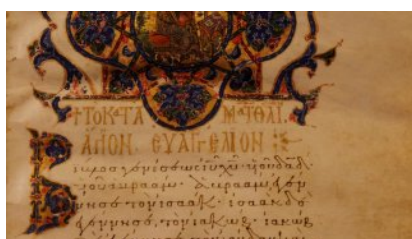 +ΤΟ ΚΑΤΑ ΜΑΤΘΑΙ.
ΑΓΙΟΝ ΕΥΑΓΓΕΛΙΟΝ
Βίβλος γενέσεως ἰῦ χῦ υἱοῦ δαδ
υἱοῦ ἀβραάμ· Ἀβραὰμ ἐγέν
νησε τὸν ἰσαάκ· ἰσαὰκ δὲ
ἐγέννησε τὸν ἰακώβ· ἰακὼβ